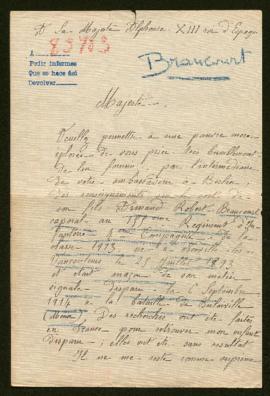 A sa Majesté Alphonse XIII roi d'Espagne
85703
A
Pedir informes
Que se hace así
Devolver
Braucourt
Majesté
Veuillez permettre à une pauvre mère
éplorée de vous prier très humblement
de lui fournir par l'intermédiaire
de votre ambassadeur à Berlin,
des renseignements au sujet de
son fils Fernand Robert Braucourt
caporal au 155 Régiment d'In
fanterie Compagnie de la
classe 1913 né à
Vaucouleurs le 25 Juillet 1893
et étant maçon de son métier
signalé disparu le 6 Septembre
1914 à la bataille de
(Meuse) Des recherches ont été faites
en France pour retrouver mon enfant
disparu ; elles ont été sans résultat
Il ne me reste comme suprême